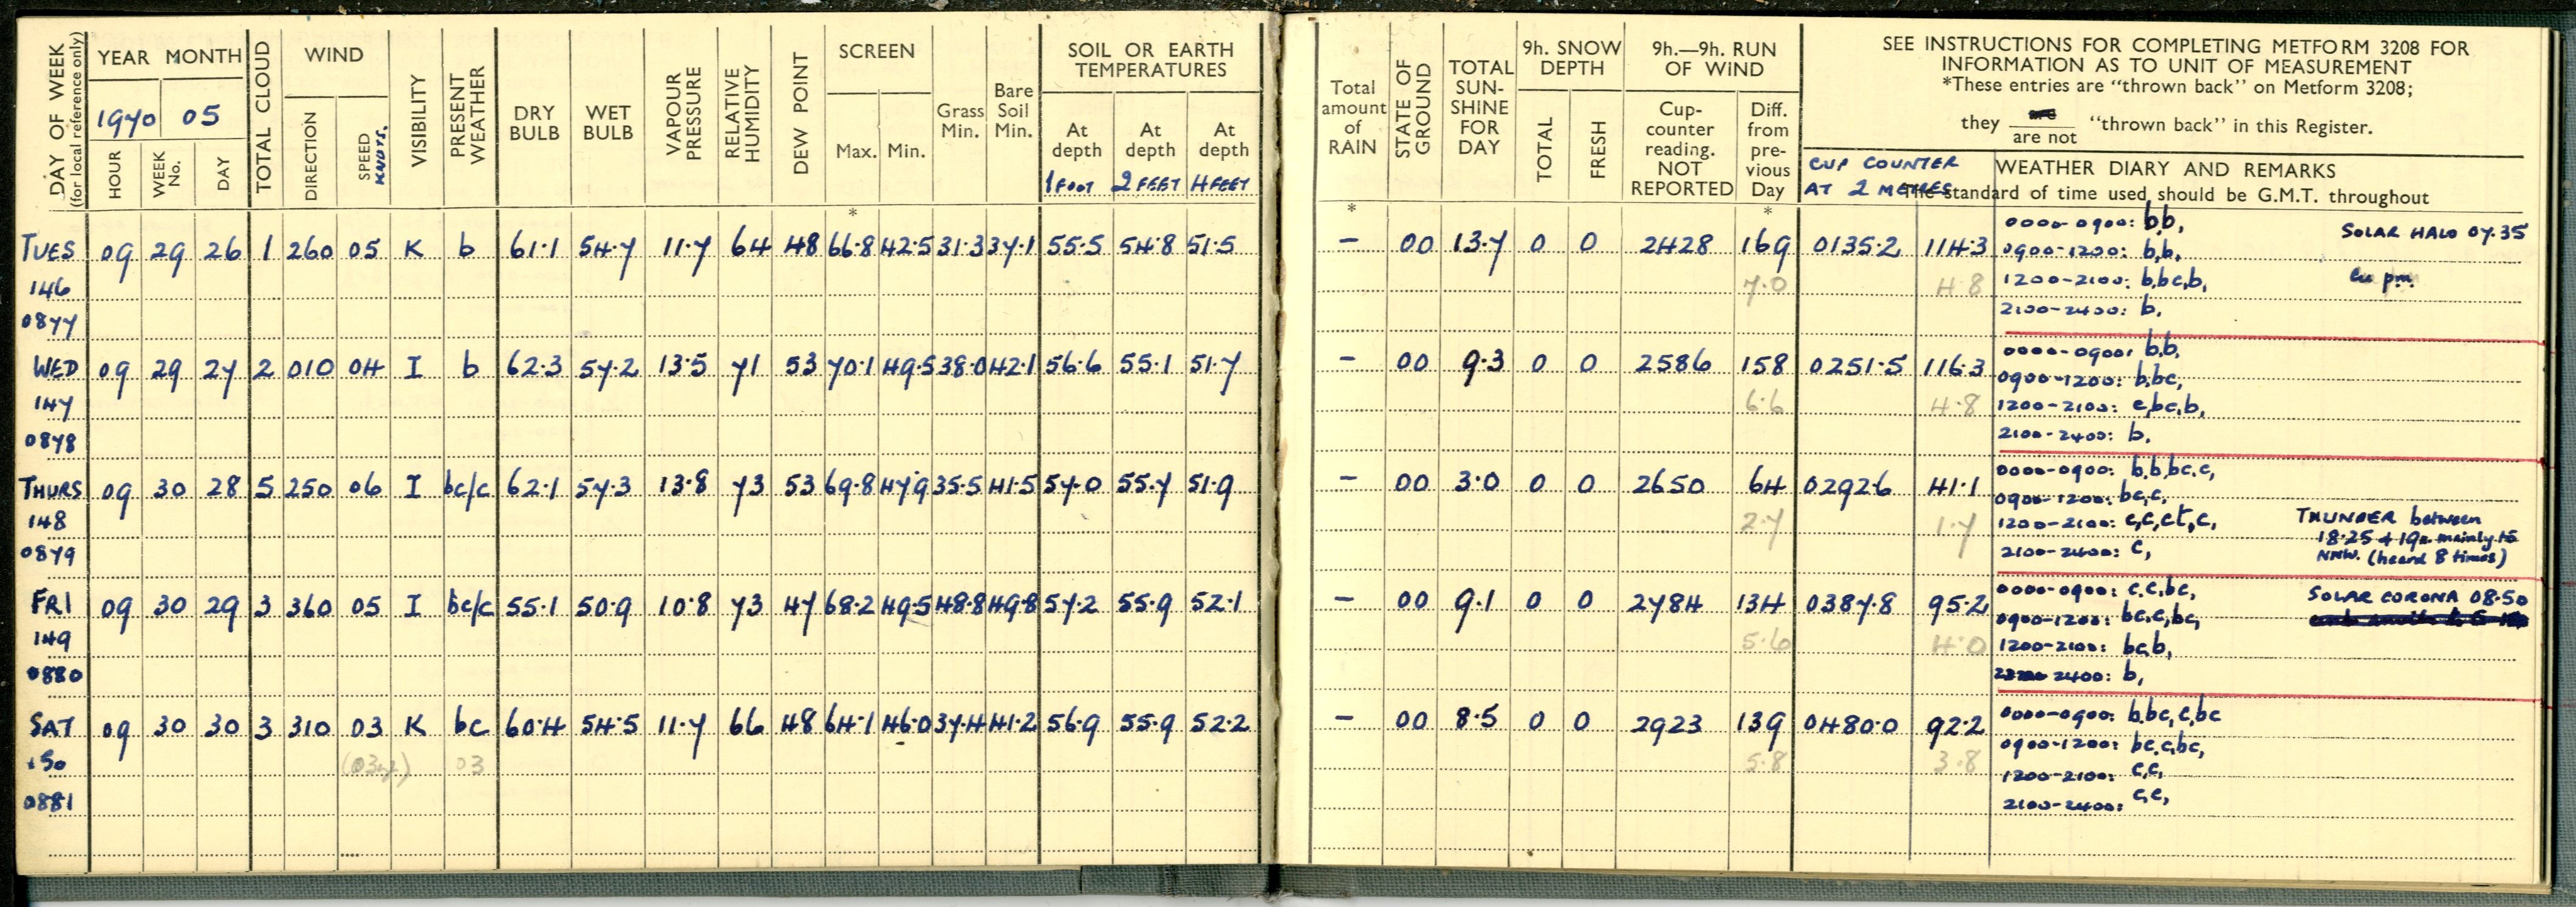 DAY OF WEEK (for local reference only)
YEAR MONTH
1970 05
HOUR WEEK No. DAY
TOTAL CLOUD
WIND
DIRECTION SPEED KNOTS.
VISIBILITY
PRESENT WEATHER
DRY BULB
WET BULB
VAPOUR PRESSURE
RELATIVE HUMIDITY
DEW POINT
SCREEN
Max. Min.
Grass Min.
Bare Soil Min.
SOIL OR EARTH TEMPERATURES
At depth 1 FOOT At depth 2 FEET At depth 4 FEET
Total amount of RAIN
STATE OF GROUND
TOTAL SUN-SHINE FOR DAY
9h. SNOW DEPTH
TOTAL FRESH
9h.—9h. RUN OF WIND
Cup-counter reading. NOT REPORTED
Diff. from pre-vious Day
SEE INSTRUCTIONS FOR COMPLETING METFORM 3208 FOR
INFORMATION AS TO UNIT OF MEASUREMENT
*These entries are "thrown back" on Metform 3208;
they are not "thrown back" in this Register.
CUP COUNTER AT 2 METRES
WEATHER DIARY AND REMARKS
The standard of time used should be G.M.T. throughout
* * *
TUES 09 29 26 1 260 05 K b 61.1 54.7 11.7 64 48 66.8 42.5 31.3 37.1 55.5 54.8 51.5 – 00 13.7 0 0 2428 169 0135.2 114.3
146 7.0 4.8
0877
0000-0900: b,b,
0900-1200: b,b,
1200-2100: b,bc,b,
2100-2400: b,
SOLAR HALO 07.35
Cu pm.
WED 09 29 27 2 010 04 I b 62.3 57.2 13.5 71 53 70.1 49.5 38.0 42.1 56.6 55.1 51.7 – 00 9.3 0 0 2586 158 0251.5 116.3
147 6.6 4.8
0878
0000-0900: b,b,
0900-1200: b,bc,
1200-2100: c,bc,b,
2100-2400: b,
THURS 09 30 28 5 250 06 I bc/c 62.1 57.3 13.8 73 53 69.8 47.9 35.5 41.5 57.0 55.7 51.9 – 00 3.0 0 0 2650 64 0292.6 41.1
148 2.7 1.7
0879
0000-0900: b,b,bc,c,
0900-1200: bc,c,
1200-2100: c,c,ct,c,
2100-2400: c,
THUNDER between
18.25 + 19 mainly to
NNW. (heard 8 times)
FRI 09 30 29 3 360 05 I bc/c 55.1 50.9 10.8 73 47 68.2 49.5 48.8 49.8 57.2 55.9 52.1 – 00 9.1 0 0 2784 134 0387.8 95.2
149 5.6 4.0
0880
0000-0900: c,c,bc,
0900-1200: bc,c,bc,
1200-2100: bc,b,
2400: b,
SOLAR CORONA 08.50
SAT 09 30 30 3 310 03 K bc 60.4 54.5 11.7 66 48 64.1 46.0 37.4 41.2 56.9 55.9 52.2 – 00 8.5 0 0 2923 139 0480.0 92.2
150 03 5.8 3.8
0881
0000-0900: b,bc,c,bc
0900-1200: bc,c,bc,
1200-2100: c,c,
2100-2400: c,c,